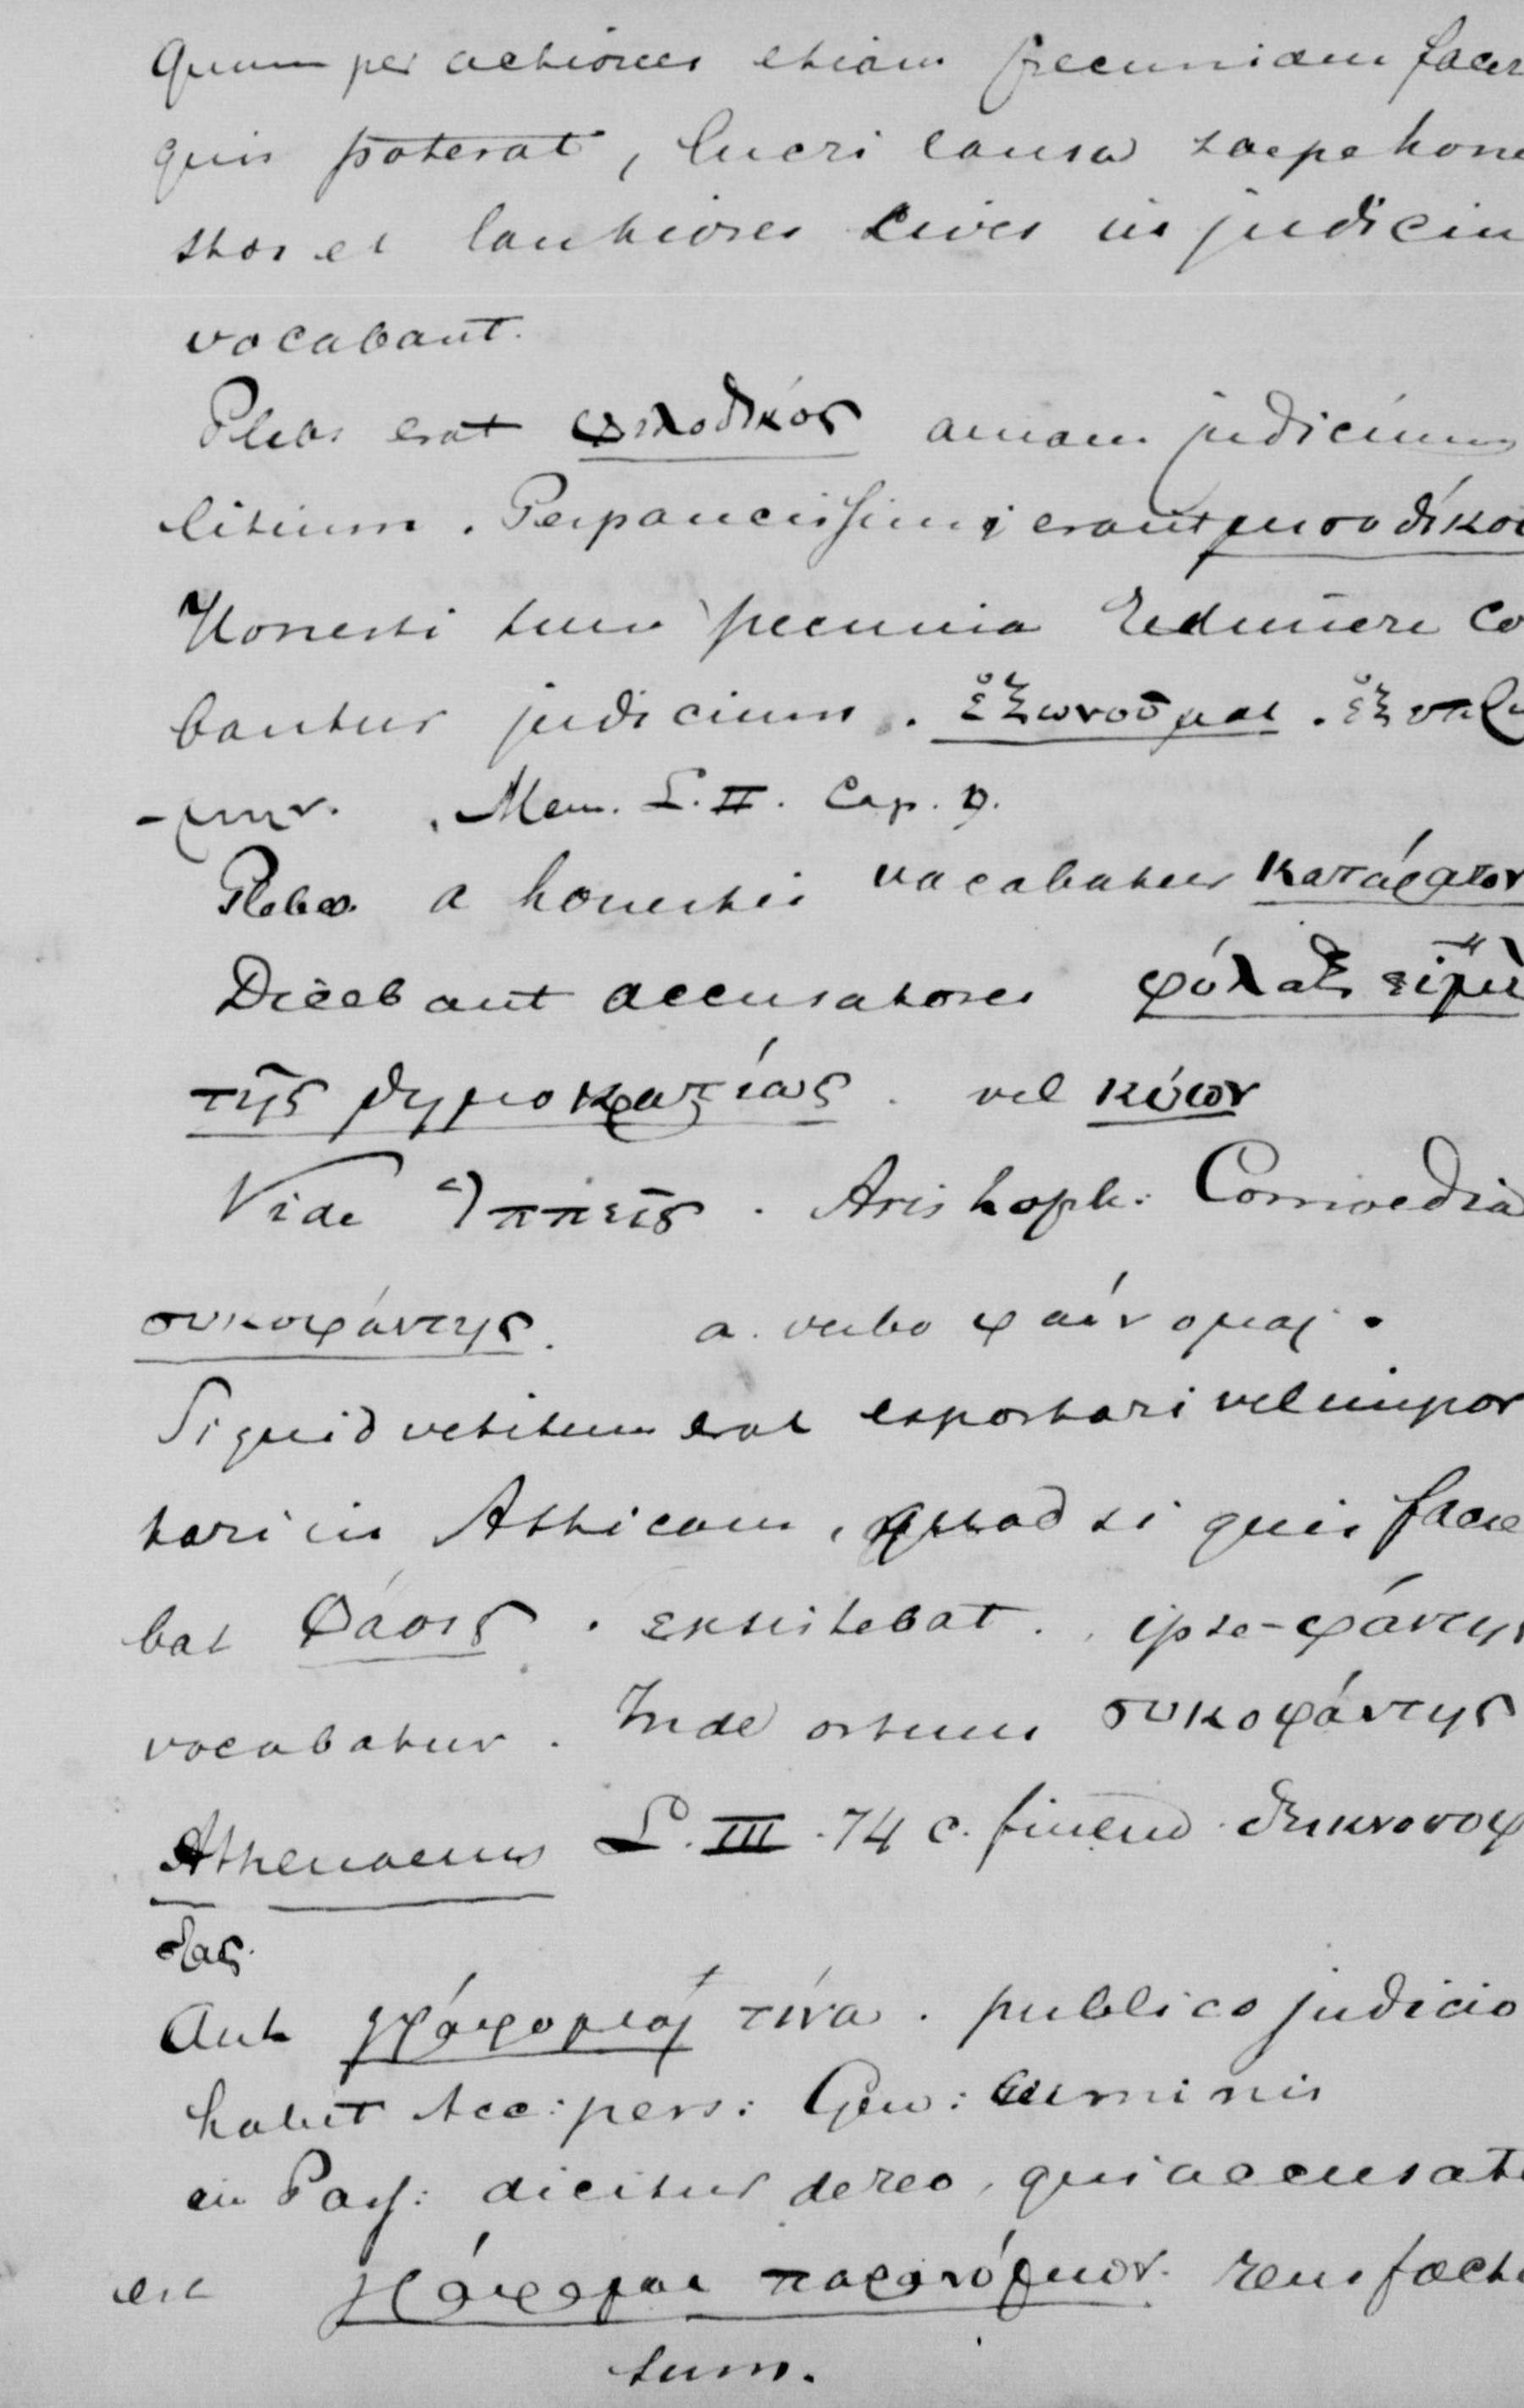 Quum per actiones etiam pecuniam facer
quis poterat, lucri causa saepe hone
stos et lautiores cives in judiciu
vocabant.
Plebs erat φιλοδικός amans judicium
litium. Perpaucissimi erant μισοδίκοι
Honesti tum pecunia redimere co
bantur judicium. ἐξωνοῦμαι.
Mem. L. II. Cap. 9.
Plebs a honestis vocabatur κατάρατον
Dicebant accusatores φύλαξ εἰμὶ
τῆς δημοκρατίας. vel κύων
Vide Ἱππεῖς. Aristoph: Comoedia
συκοφάντης. a verbo φαίνομαι.
Si quid vetitum erat exportari vel impor
tari in Atticam, quod si quis facie
bat Φάσις. existebat. ipse-φάντης
vocabatur. Inde ortum συκοφάντης
Athenaeus L. III. 74 c. finem
δας.
Aut γράφομαί τινα. publico judicio
habet Acc: pers: Gen: criminis
in Pass: dicitur de reo, qui accusat
est γράφομαι παρανόμων. reus fact
sum.